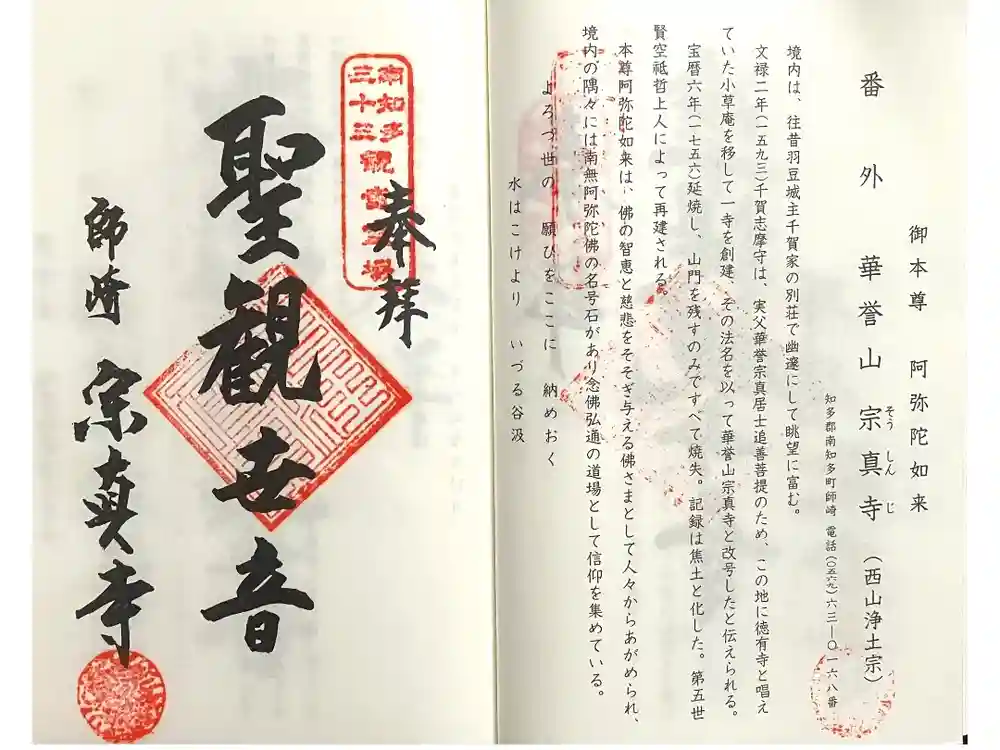 御本尊　阿弥陀如来
番外　華誉山　宗真寺（西山浄土宗）
そう　しん　じ
知多郡南知多町師崎　電話（〇五六九）六三―〇一六八番
境内は、往昔羽豆城主千賀家の別荘で幽邃にして眺望に富む。
文禄二年（一五九三）千賀志摩守は、実父華誉宗真居士追善菩提のため、この地に徳有寺と唱え
ていた小草庵を移して一寺を創建、その法名を以って華誉山宗真寺と改号したと伝えられる。
宝暦六年（一七五六）延焼し、山門を残すのみですべて焼失。記録は焦土と化した。第五世
賢空祗哲上人によって再建される。
本尊阿弥陀如来は、佛の智恵と慈悲をそそぎ与える佛さまとして人々からあがめられ、
境内の隅々には南無阿弥陀佛の名号石があり念佛弘通の道場として信仰を集めている。
よろづ世の　願ひをここに　納めおく
水はこけより　いづる谷汲
南知多
三十三
観音霊場
奉拝
聖観世音
師崎　宗真寺